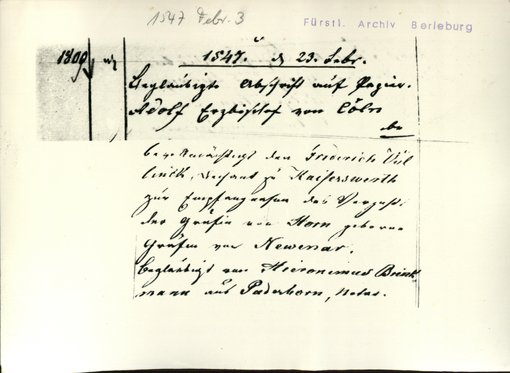 1547 Febr. 3
Fürstl. Archiv Berleburg
1800
1547. d 23. Febr.
Beglaubigte Abschrift auf Papier.
Adolf Erzbischof von Cöln
be
bevollmächtigt den Friederich
Dechant zu Kaiserswerth
zur Empfangnahme des Verzichts
der Gräfin von Horn geborne
Gräfin von Newenar.
Beglaubigt von Hieronimus Brink
mann aus Paderborn, Notar.